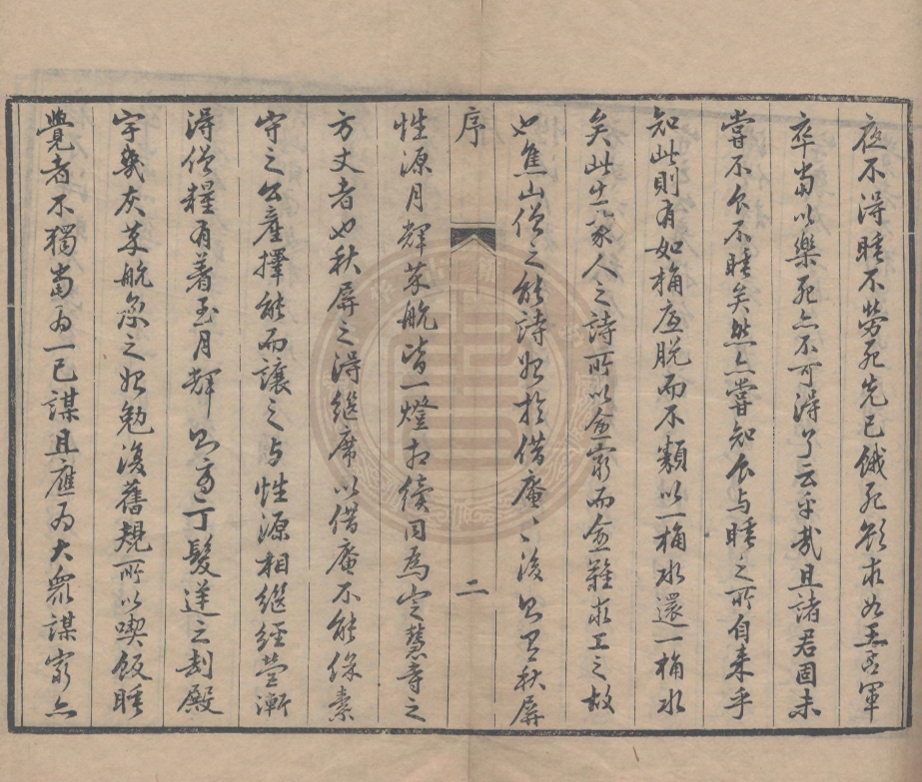 夜不得睡不勞死先已餓死欲求如王右軍
卒當以樂死亦不可得了云乎哉且諸君固未
嘗不食不睡矣然亦嘗知食与睡之所自来乎
知此則有如桶底脱而不類以一桶水還一桶水
矣此生公家人之詩所以愈窮而愈難求工之故
也焦山僧之能詩始於借庵〻後則有秋屏
序
二
性源月輝芥航皆一燈相續同為定慧寺之
方丈者也秋屏之得繼席以借庵不能保素
守之公產擇能而讓之与性源相繼經營漸
得僧糧有著至月輝則方丁髮逆之刦殿
宇幾灰芥航急之始勉復舊規所以喫飯睡
覺者不獨當為一己謀且應為大眾謀窮亦